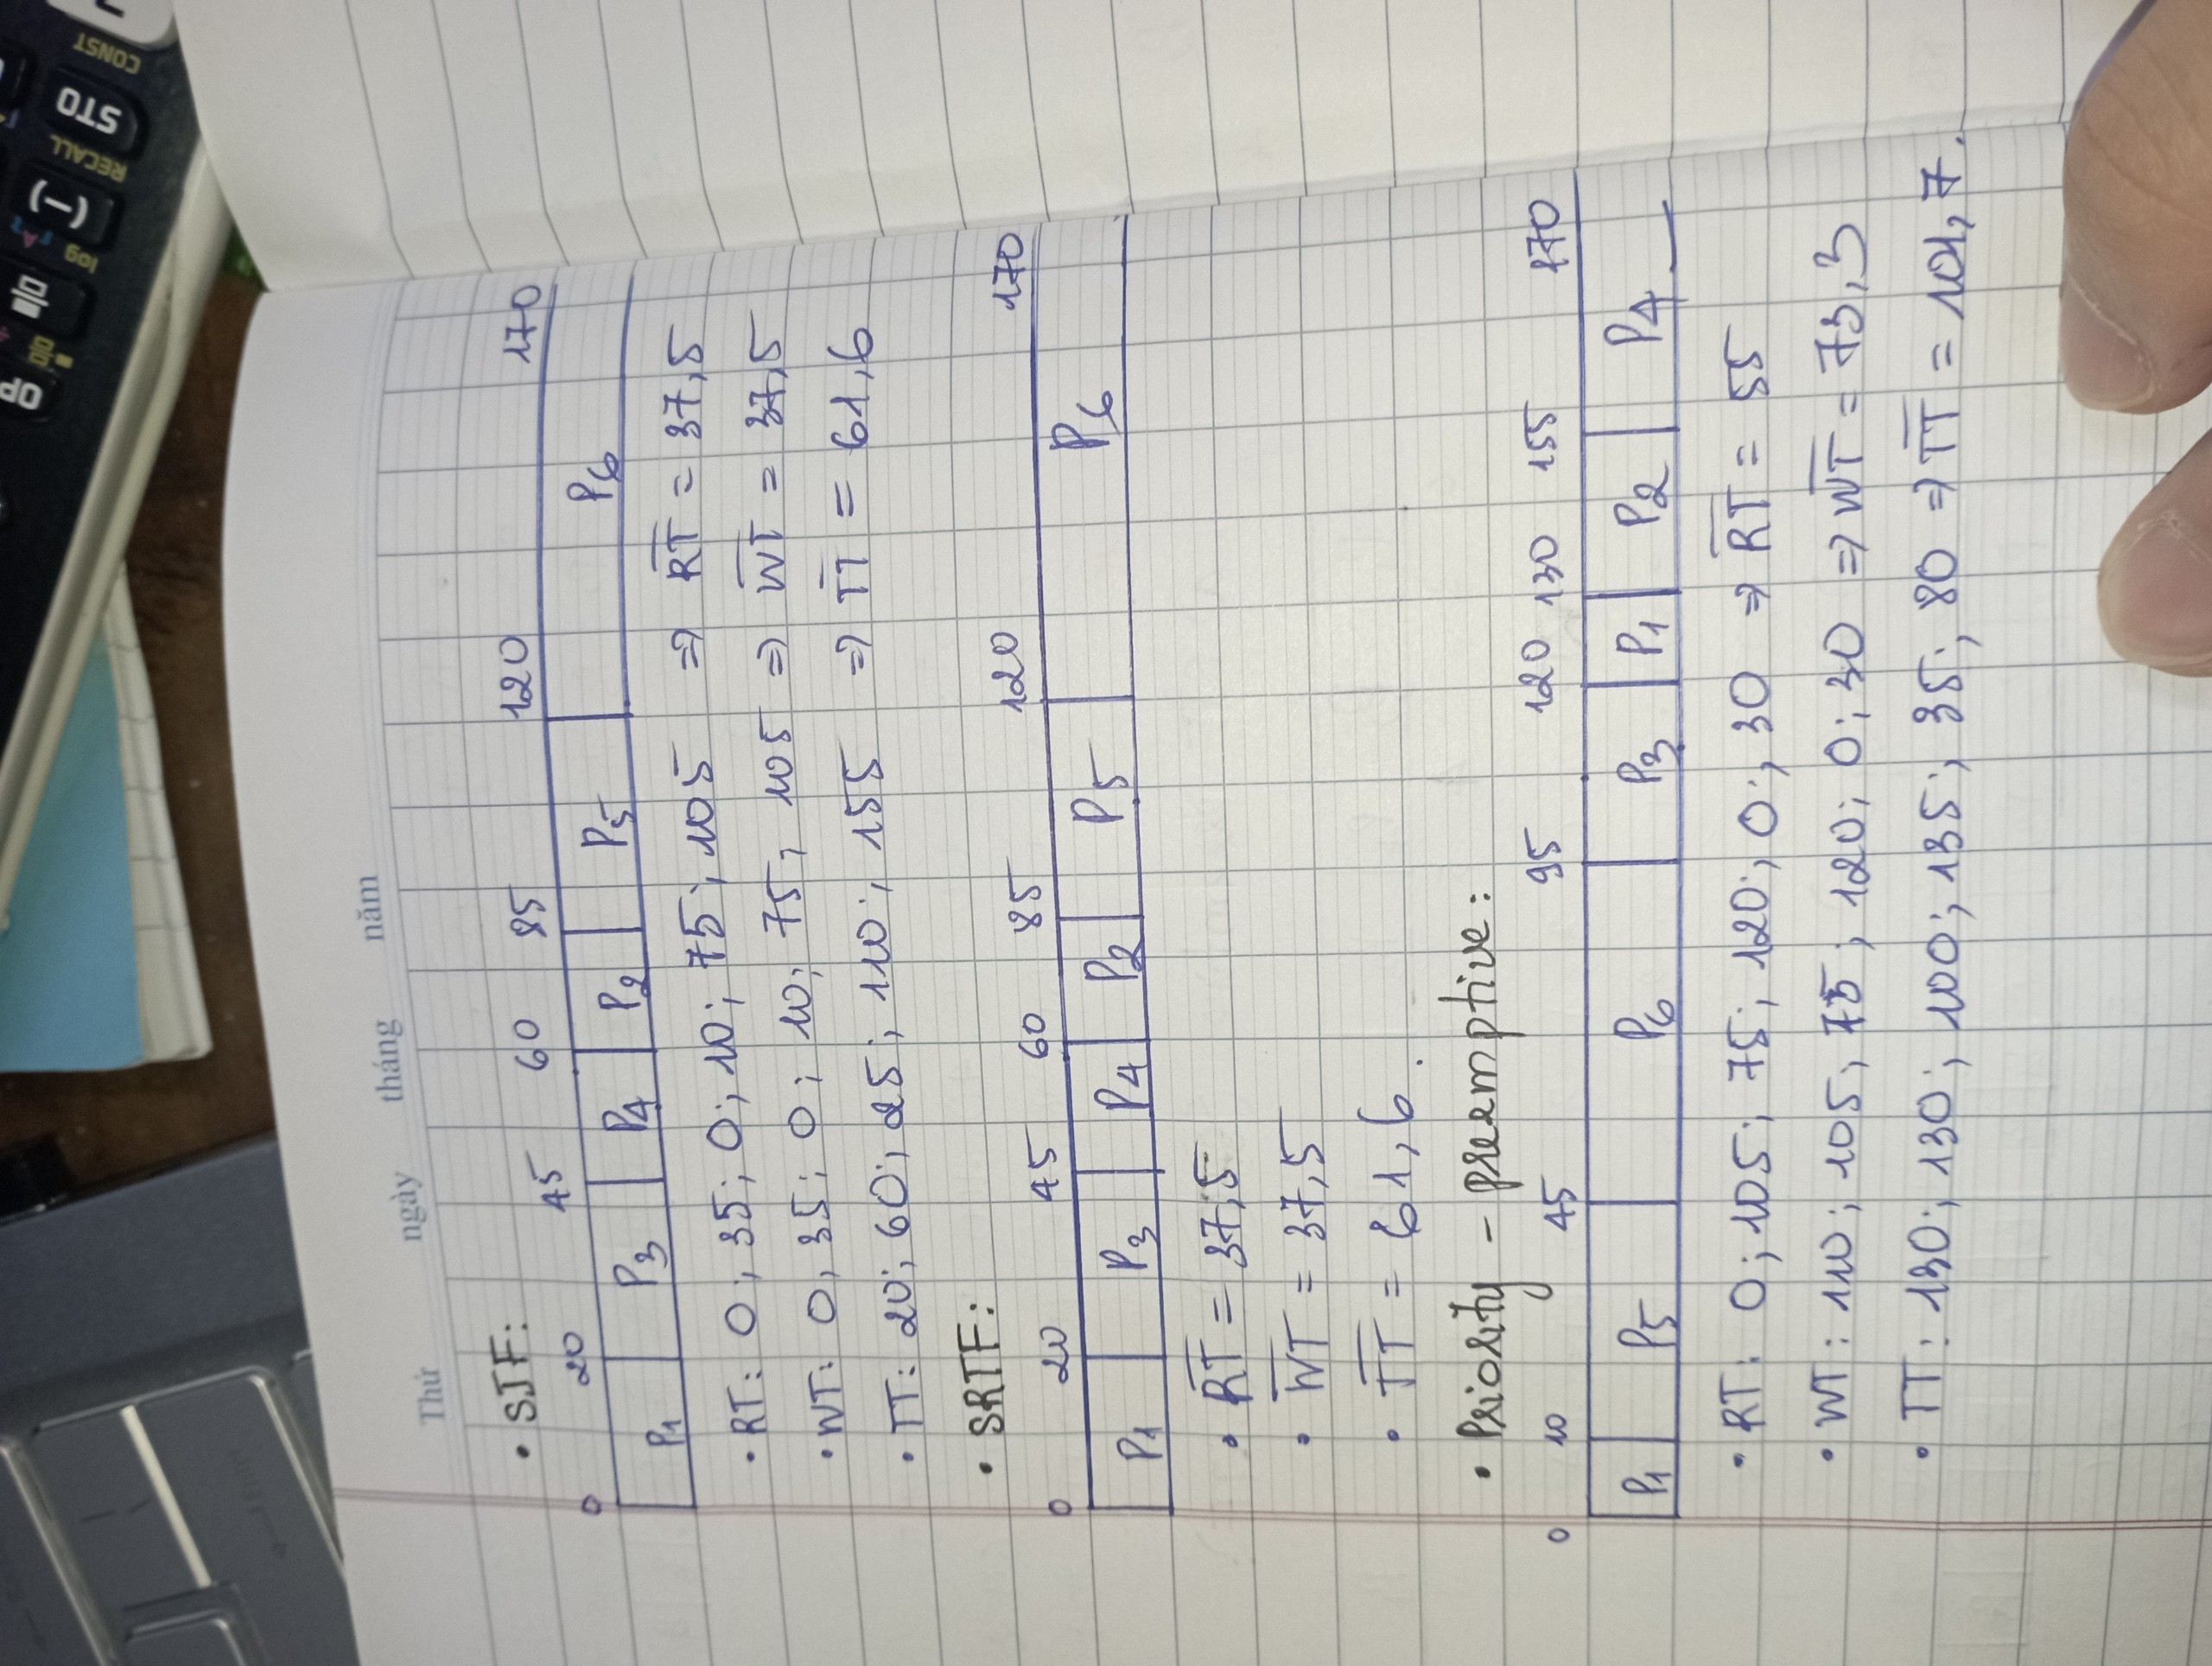 Thứ ngày tháng năm
• SJF:
0 20 45 60 85 120 170
P1 P3 P4 P2 P5 P6
• RT: 0; 35; 0; 10; 75; 105 ⇒ RT = 37,5
• WT: 0; 35; 0; 10; 75; 105 ⇒ WT = 37,5
• TT: 20; 60; 25; 25; 110; 155 ⇒ TT = 61,6
• SRTF:
0 20 45 60 85 120 170
P1 P3 P4 P2 P5 P6
• RT = 37,5
• WT = 37,5
• TT = 61,6.
• Priority - preemptive:
0 10 45 95 120 130 155 170
P1 P5 P6 P3 P1 P2 P4
• RT: 0; 105; 75; 120; 0; 30 ⇒ RT = 55
• WT: 110; 105; 75; 120; 0; 30 ⇒ WT = 73,3
• TT: 130; 130; 100; 135; 35; 80 ⇒ TT = 101,7.
CONST
STO
RECALL
(−)
log
OP